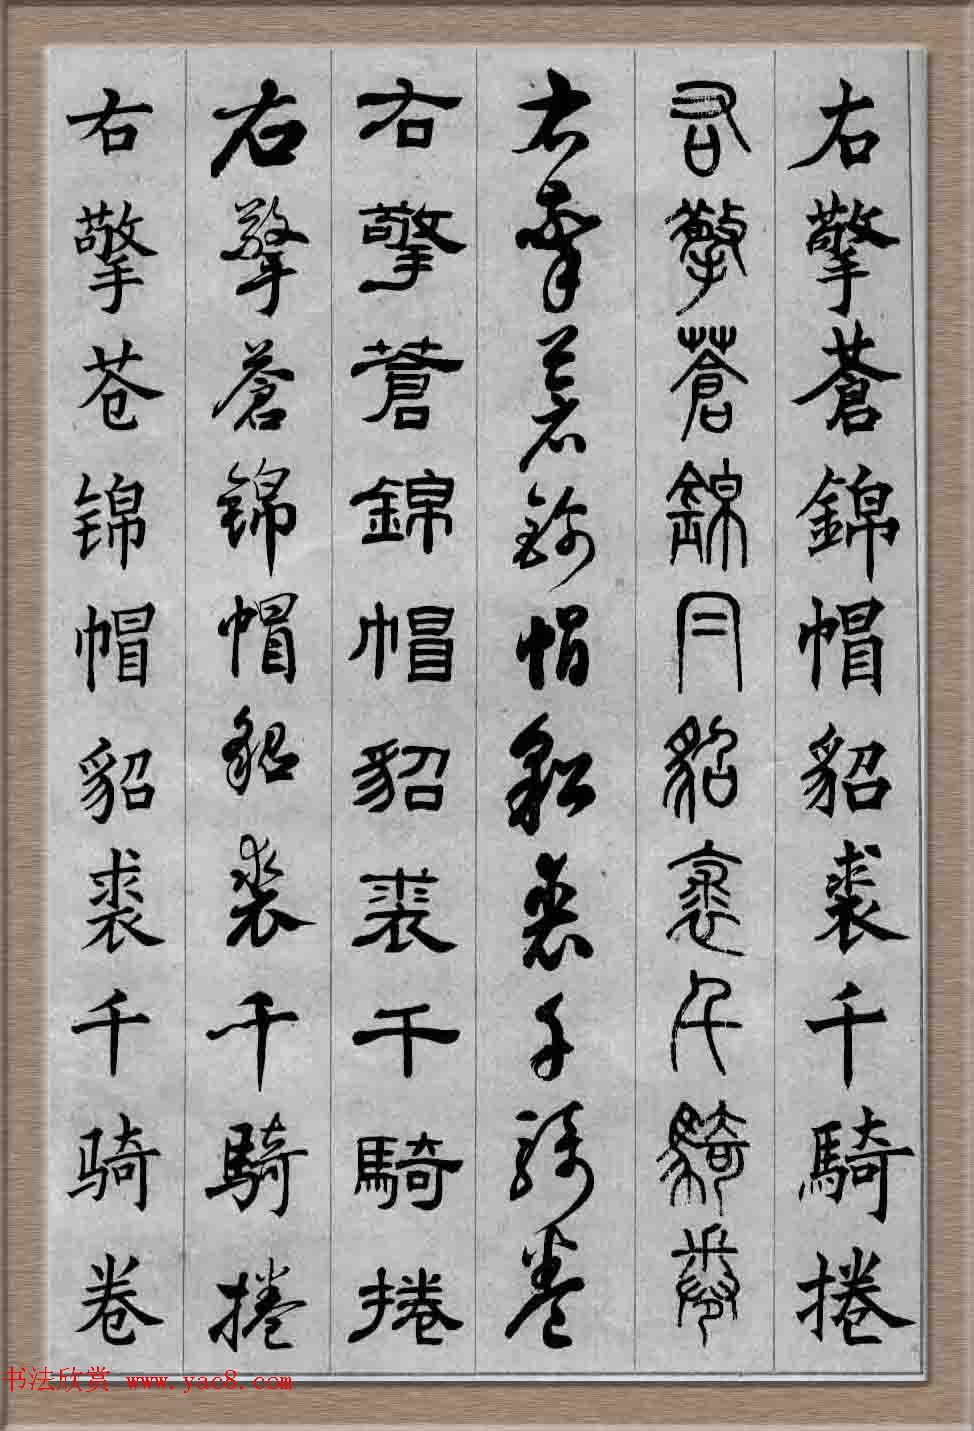 右擎蒼錦帽貂裘千騎捲
右擎蒼錦冃貂裘千騎卷
右擎蒼錦帽貂裘千騎卷
右擎蒼錦帽貂裘千騎捲
右擎蒼锦帽貂裘千騎捲
右擎苍锦帽貂裘千骑卷
书法欣赏 www.yac8.com